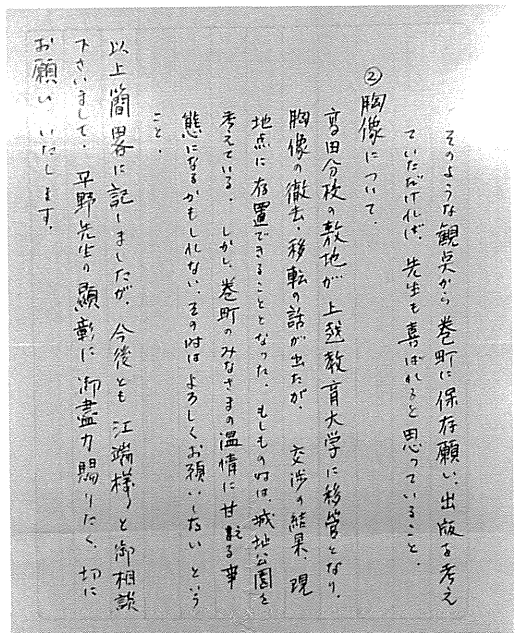 そのような観点から巻町に保存願い、出版を考え
ていただければ、先生も喜ばれると思っていること。
②胸像について。
高田分校の敷地が上越教育大学に移管となり、
胸像の撤去・移転の話が出たが、交渉の結果、現
地点に存置できることとなった。もしもの時は、城址公園を
考えている。しかし、巻町のみなさまの温情に甘える事
態になるかもしれない。その時はよろしくお願いしたいという
こと。
以上簡略に記しましたが、今後とも江端様と御相談
下さいまして、平野先生の顕彰に御盡力賜りたく、切に
お願いいたします。